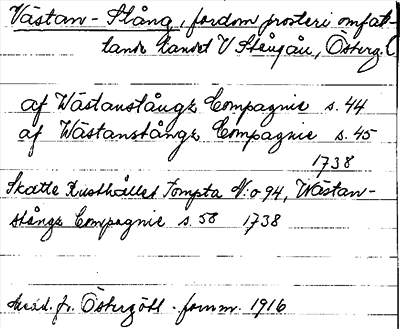 Västan-Stång, fordom prosteri omfat-
tande landet V Stångån, Österg.
af Wästanstångz Compagnie s. 44
af Wästanstångz Compagnie s. 45
1738
Skatte Rusthållet Tompta N:o 94, Wästan-
stångz Compagnie s. 58 1738
fr. Östergötl. fornm. 1916